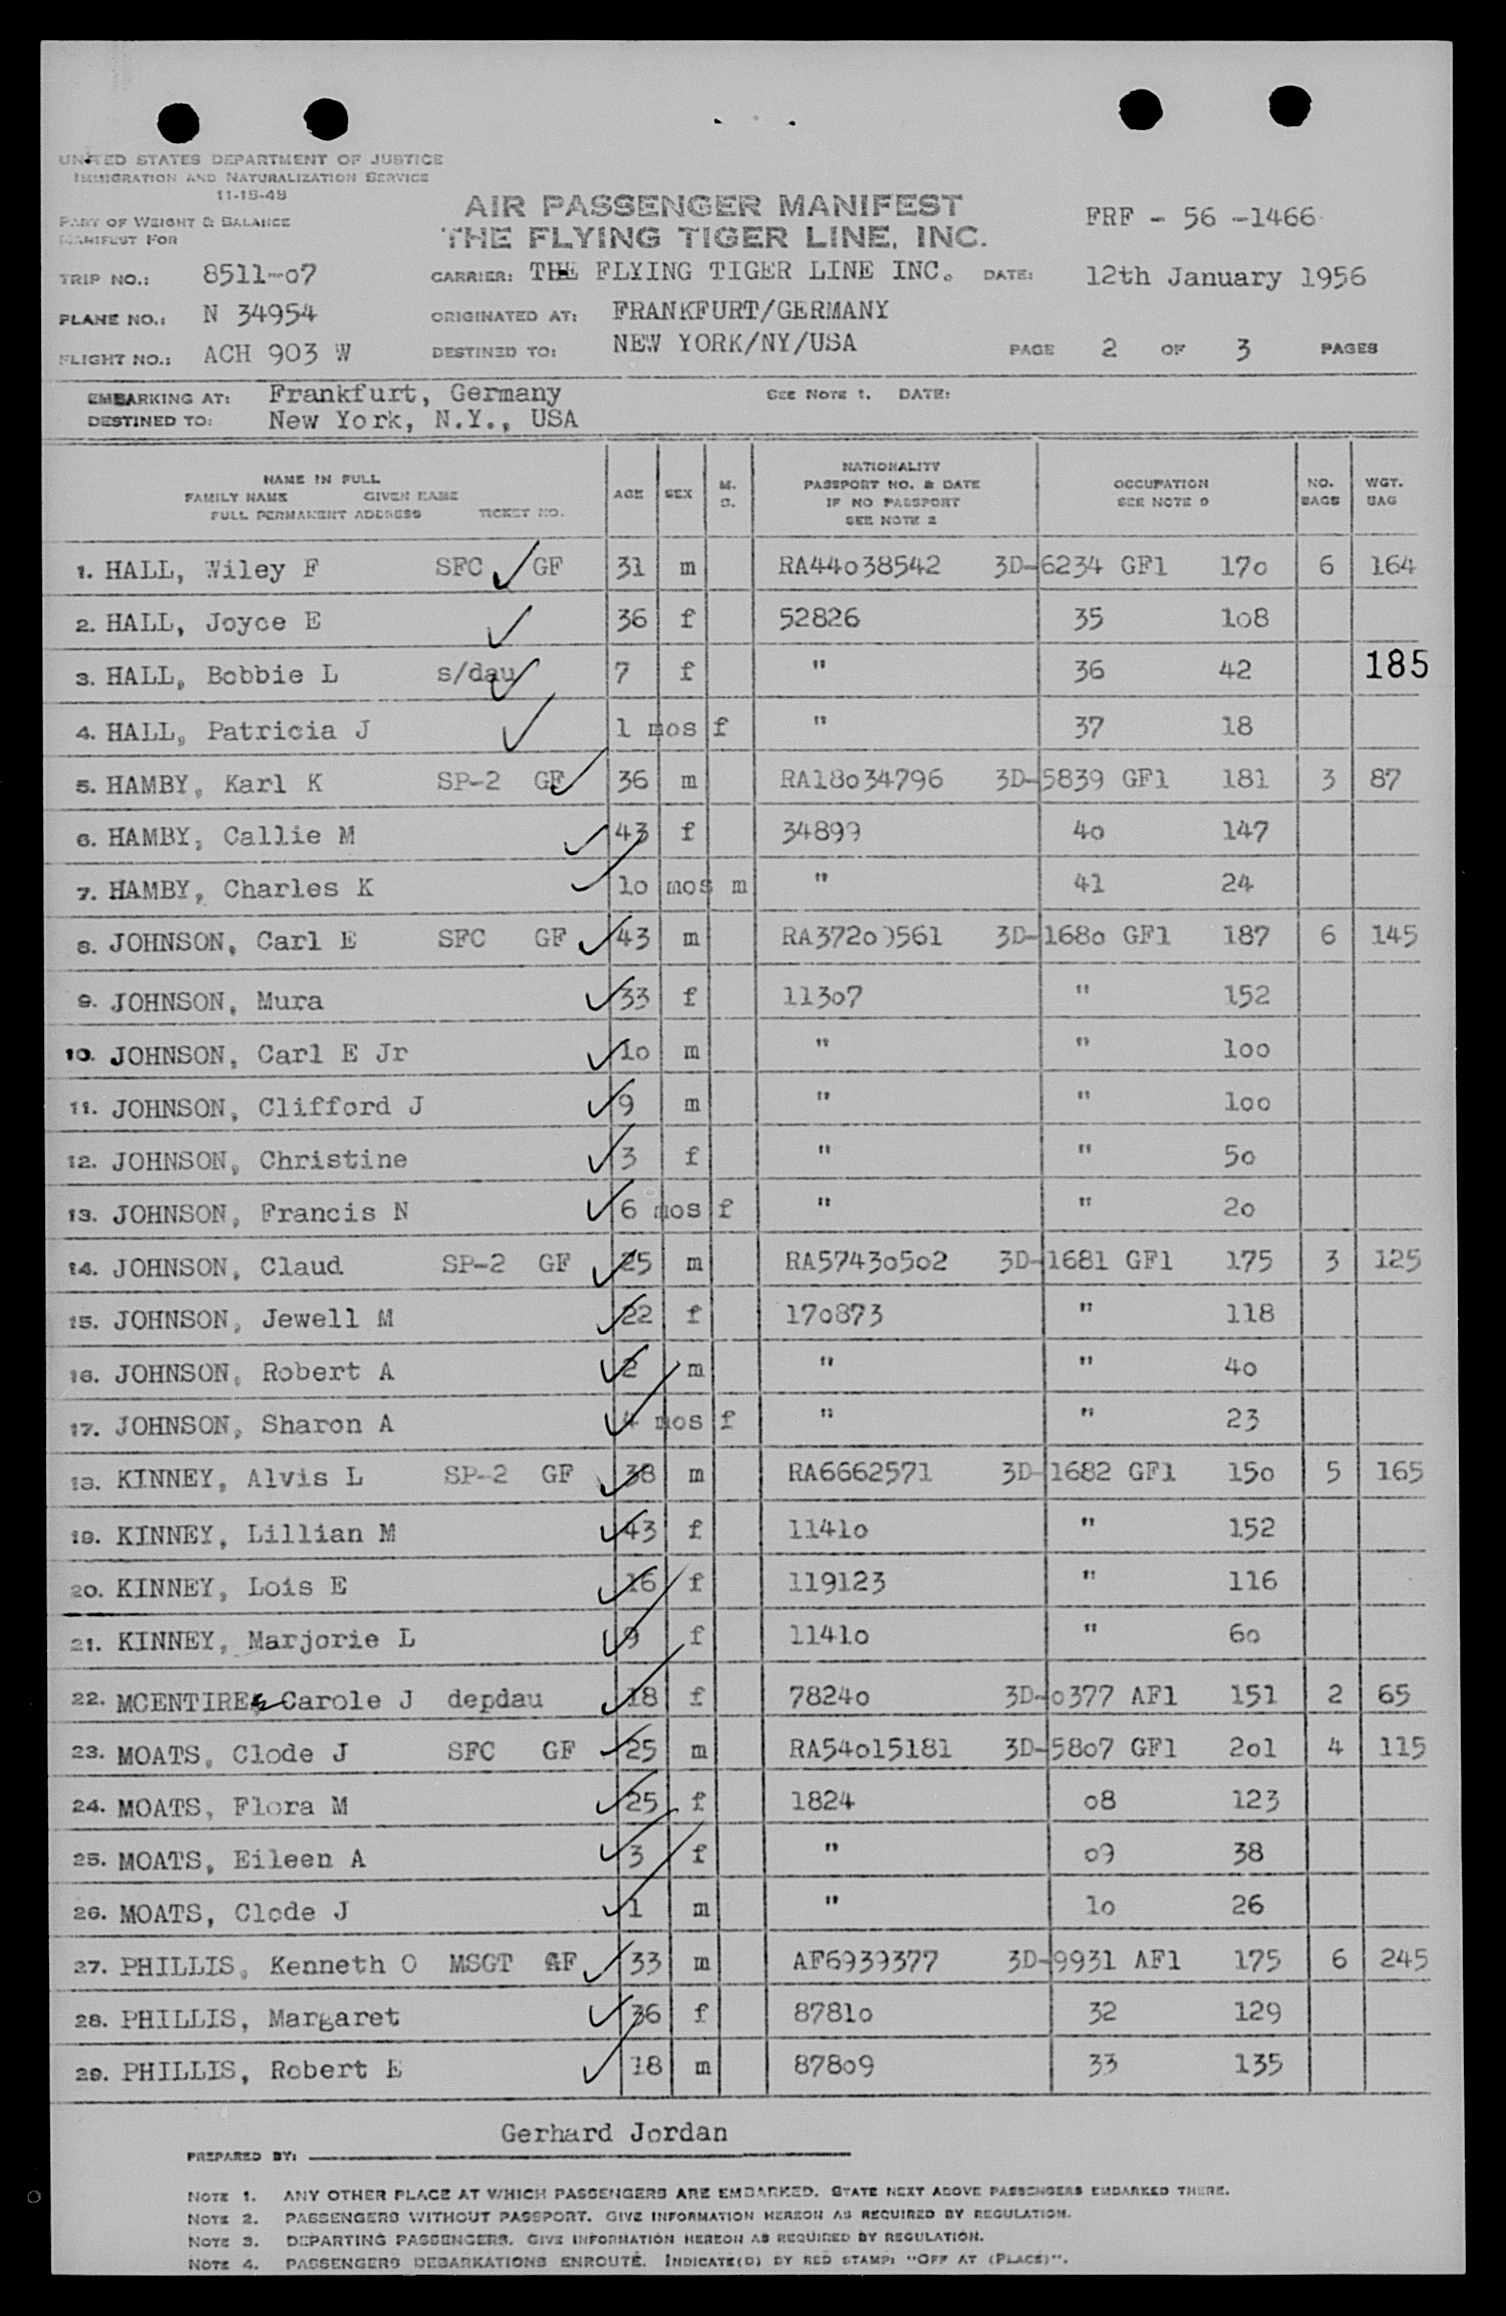 UNITED STATES DEPARTMENT OF JUSTICE
IMMIGRATION AND NATURALIZATION SERVICE
11-15-48
PART OF WEIGHT & BALANCE
MANIFEST FOR
AIR PASSENGER MANIFEST
THE FLYING TIGER LINE, INC.
FRF - 56 -1466
TRIP NO.: 8511-07 CARRIER: THE FLYING TIGER LINE INC. DATE: 12th January 1956
PLANE NO.: N 34954 ORIGINATED AT: FRANKFURT/GERMANY
FLIGHT NO.: ACH 903 W DESTINED TO: NEW YORK/NY/USA PAGE 2 OF 3 PAGES
EMBARKING AT: Frankfurt, Germany SEE NOTE 1. DATE:
DESTINED TO: New York, N.Y., USA
NAME IN FULL
FAMILY NAME GIVEN NAME
FULL PERMANENT ADDRESS TICKET NO.
AGE SEX M. S.
NATIONALITY
PASSPORT NO. & DATE
IF NO PASSPORT
SEE NOTE 2
OCCUPATION
SEE NOTE 3
NO. BAGS
WGT. BAG
1. HALL, Wiley F SFC GF 31 m RA44038542 3D-6234 GF1 170 6 164
2. HALL, Joyce E 36 f 52826 35 108
3. HALL, Bobbie L s/dau 7 f " 36 42 185
4. HALL, Patricia J 1 mos f " 37 18
5. HAMBY, Karl K SP-2 GF 36 m RA18034796 3D-5839 GF1 181 3 87
6. HAMBY, Callie M 43 f 34899 40 147
7. HAMBY, Charles K 10 mos m " 41 24
8. JOHNSON, Carl E SFC GF 43 m RA37209561 3D-1680 GF1 187 6 145
9. JOHNSON, Mura 33 f 11307 " 152
10. JOHNSON, Carl E Jr 10 m " " 100
11. JOHNSON, Clifford J 9 m " " 100
12. JOHNSON, Christine 3 f " " 50
13. JOHNSON, Francis N 6 mos f " " 20
14. JOHNSON, Claud SP-2 GF 25 m RA57430502 3D-1681 GF1 175 3 125
15. JOHNSON, Jewell M 22 f 170873 " 118
16. JOHNSON, Robert A 2 m " " 40
17. JOHNSON, Sharon A 4 mos f " " 23
18. KINNEY, Alvis L SP-2 GF 38 m RA6662571 3D-1682 GF1 150 5 165
19. KINNEY, Lillian M 43 f 11410 " 152
20. KINNEY, Lois E 16 f 119123 " 116
21. KINNEY, Marjorie L 9 f 11410 " 60
22. MCENTIRE, Carole J depdau 18 f 78240 3D-0377 AF1 151 2 65
23. MOATS, Clode J SFC GF 25 m RA54015181 3D-5807 GF1 201 4 115
24. MOATS, Flora M 25 f 1824 08 123
25. MOATS, Eileen A 3 f " 09 38
26. MOATS, Clode J 1 m " 10 26
27. PHILLIS, Kenneth O MSGT AF 33 m AF6939377 3D-9931 AF1 175 6 245
28. PHILLIS, Margaret 36 f 87810 32 129
29. PHILLIS, Robert E 18 m 87809 33 135
Gerhard Jordan
PREPARED BY:
NOTE 1. ANY OTHER PLACE AT WHICH PASSENGERS ARE EMBARKED. STATE NEXT ABOVE PASSENGERS EMBARKED THERE.
NOTE 2. PASSENGERS WITHOUT PASSPORT. GIVE INFORMATION HEREON AS REQUIRED BY REGULATION.
NOTE 3. DEPARTING PASSENGERS. GIVE INFORMATION HEREON AS REQUIRED BY REGULATION.
NOTE 4. PASSENGERS DEBARKATIONS ENROUTE. INDICATE(D) BY RED STAMP: "OFF AT (PLACE)".